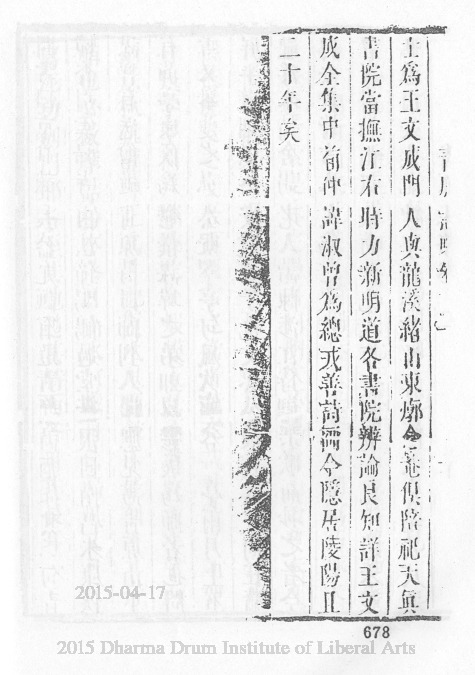 士爲王文成門人與龍溪緒山東廓今菴俱陪祀天眞
書院當撫江右時力新明道各書院辨論良知詳王文
成全集中荀仲諱淑曾爲總戎善詩薦今隱居陵陽且
二十年矣
678
2015-04-17
2015 Dharma Drum Institute of Liberal Arts